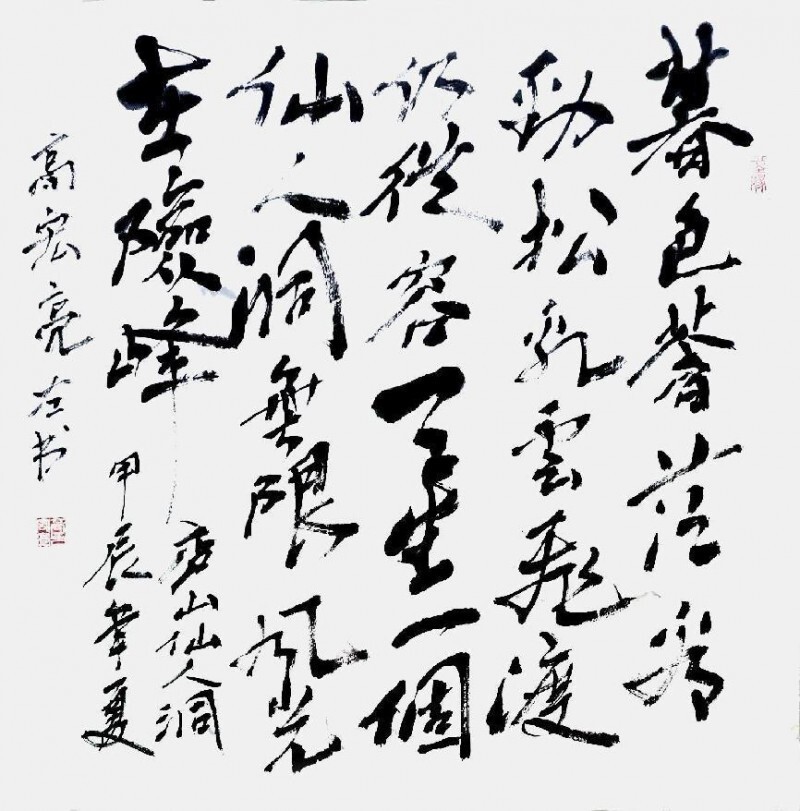 暮色蒼茫看
劲松乱雲飛渡
仍從容天生一個
仙人洞無限风光
在險峰
庐山仙人洞
甲辰年夏
高宏亮左书